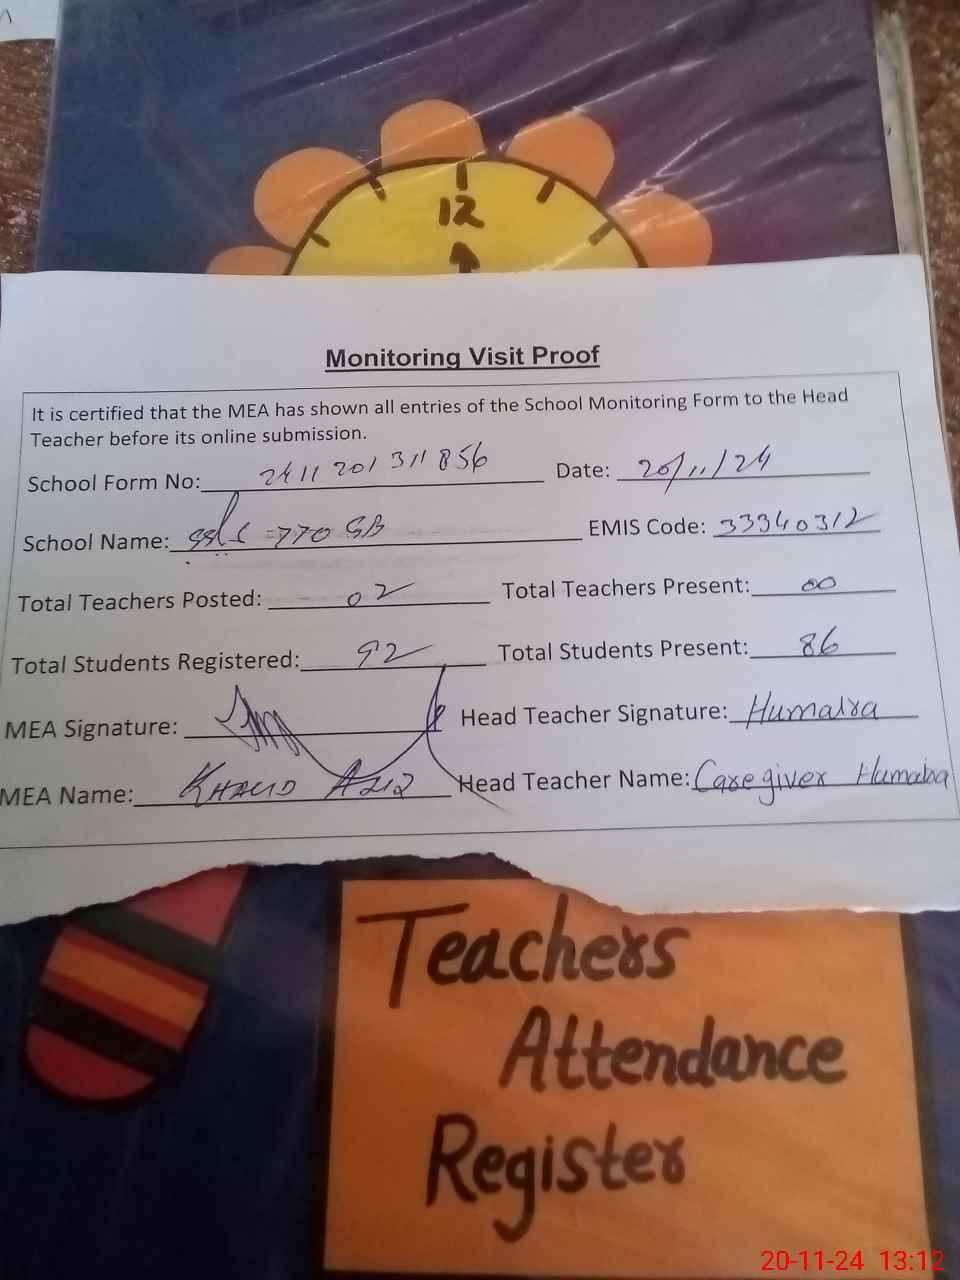 12
Monitoring Visit Proof
It is certified that the MEA has shown all entries of the School Monitoring Form to the Head
Teacher before its online submission.
School Form No: 2411201311856 Date: 20/11/24
School Name: 770 GB EMIS Code: 33340312
Total Teachers Posted: 02 Total Teachers Present: 00
Total Students Registered: 92 Total Students Present: 86
MEA Signature: Head Teacher Signature: Humaira
MEA Name: KHALID AZIZ Head Teacher Name: Caregiver Humaira
Teachers
Attendance
Register
20-11-24 13:12